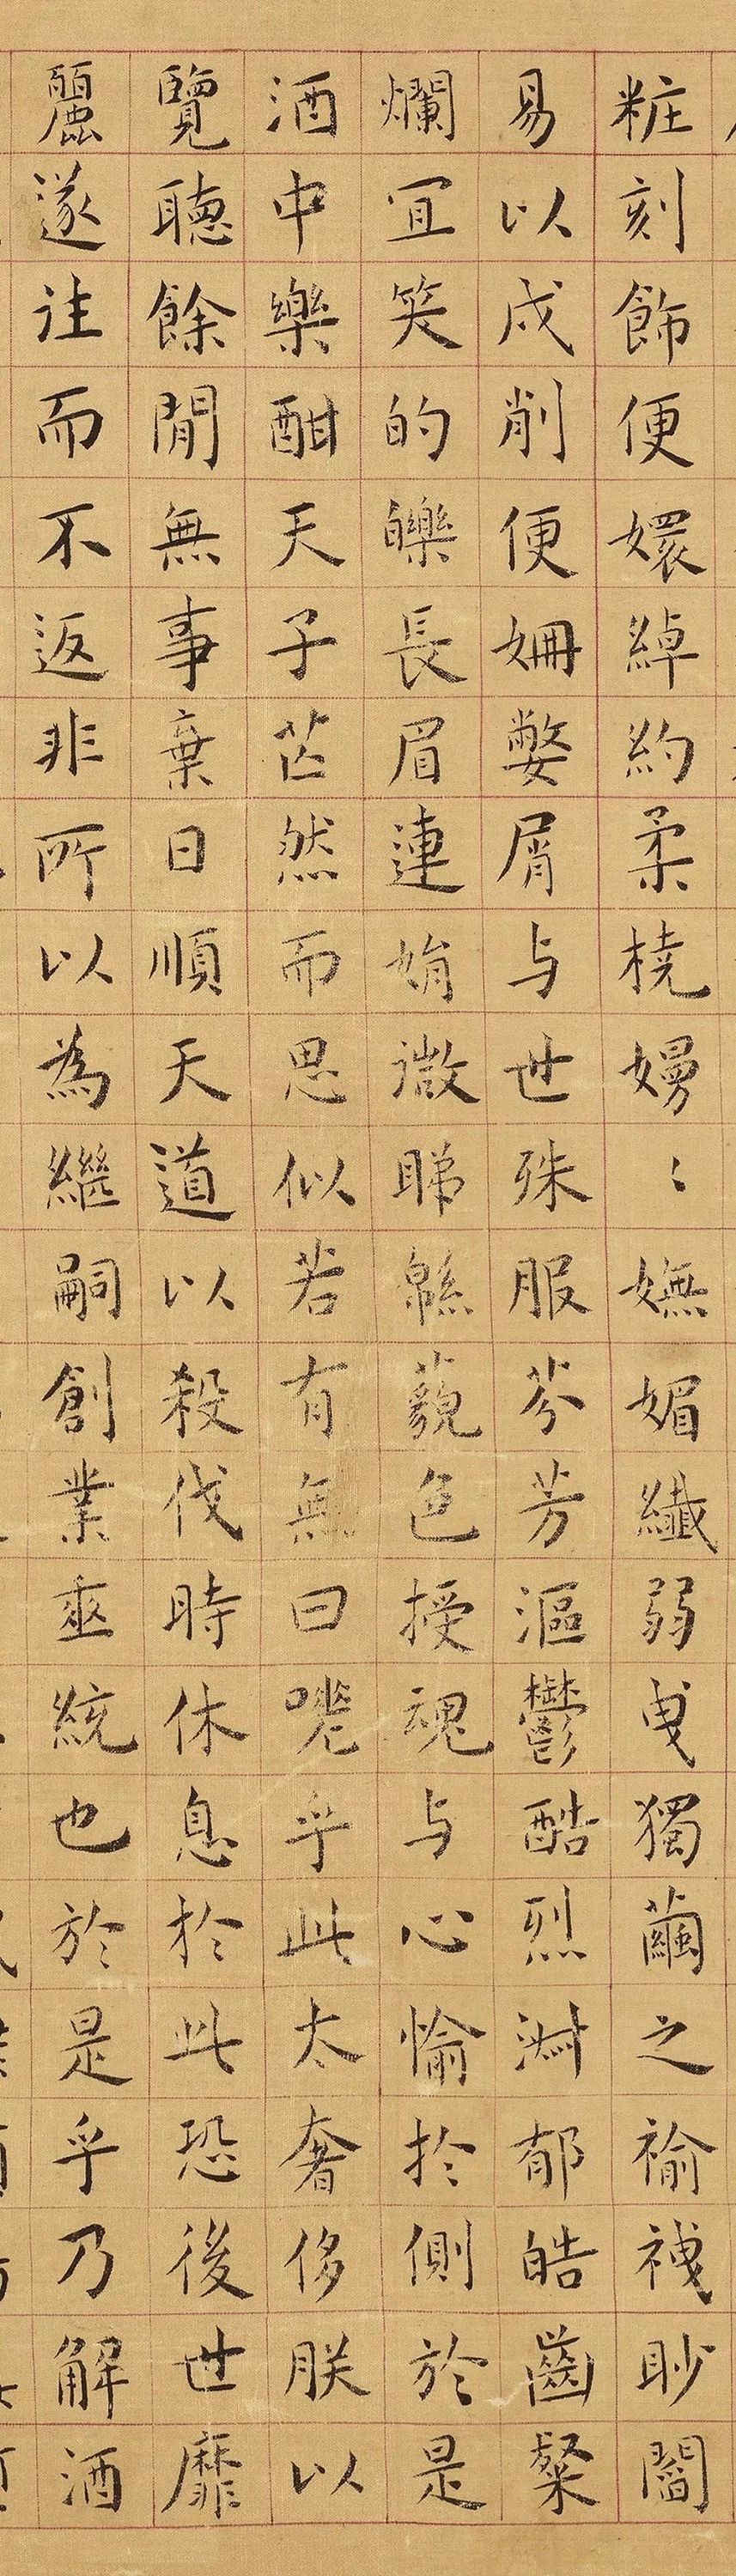 粧刻飾便嬛綽約柔橈嫚〻嫵媚纖弱曳獨繭之褕袣眇閻
易以戌削便姍嫳屑与世殊服芬芳漚鬱酷烈淑郁皓齒粲
爛宜笑的皪長眉連娟微睇緜藐色授魂与心愉於側於是
酒中樂酣天子芒然而思似若有無曰嗟乎此太奢侈朕以
覽聽餘閒無事棄日順天道以殺伐時休息於此恐後世靡
麗遂往而不返非所以為繼嗣創業垂統也於是乎乃解酒